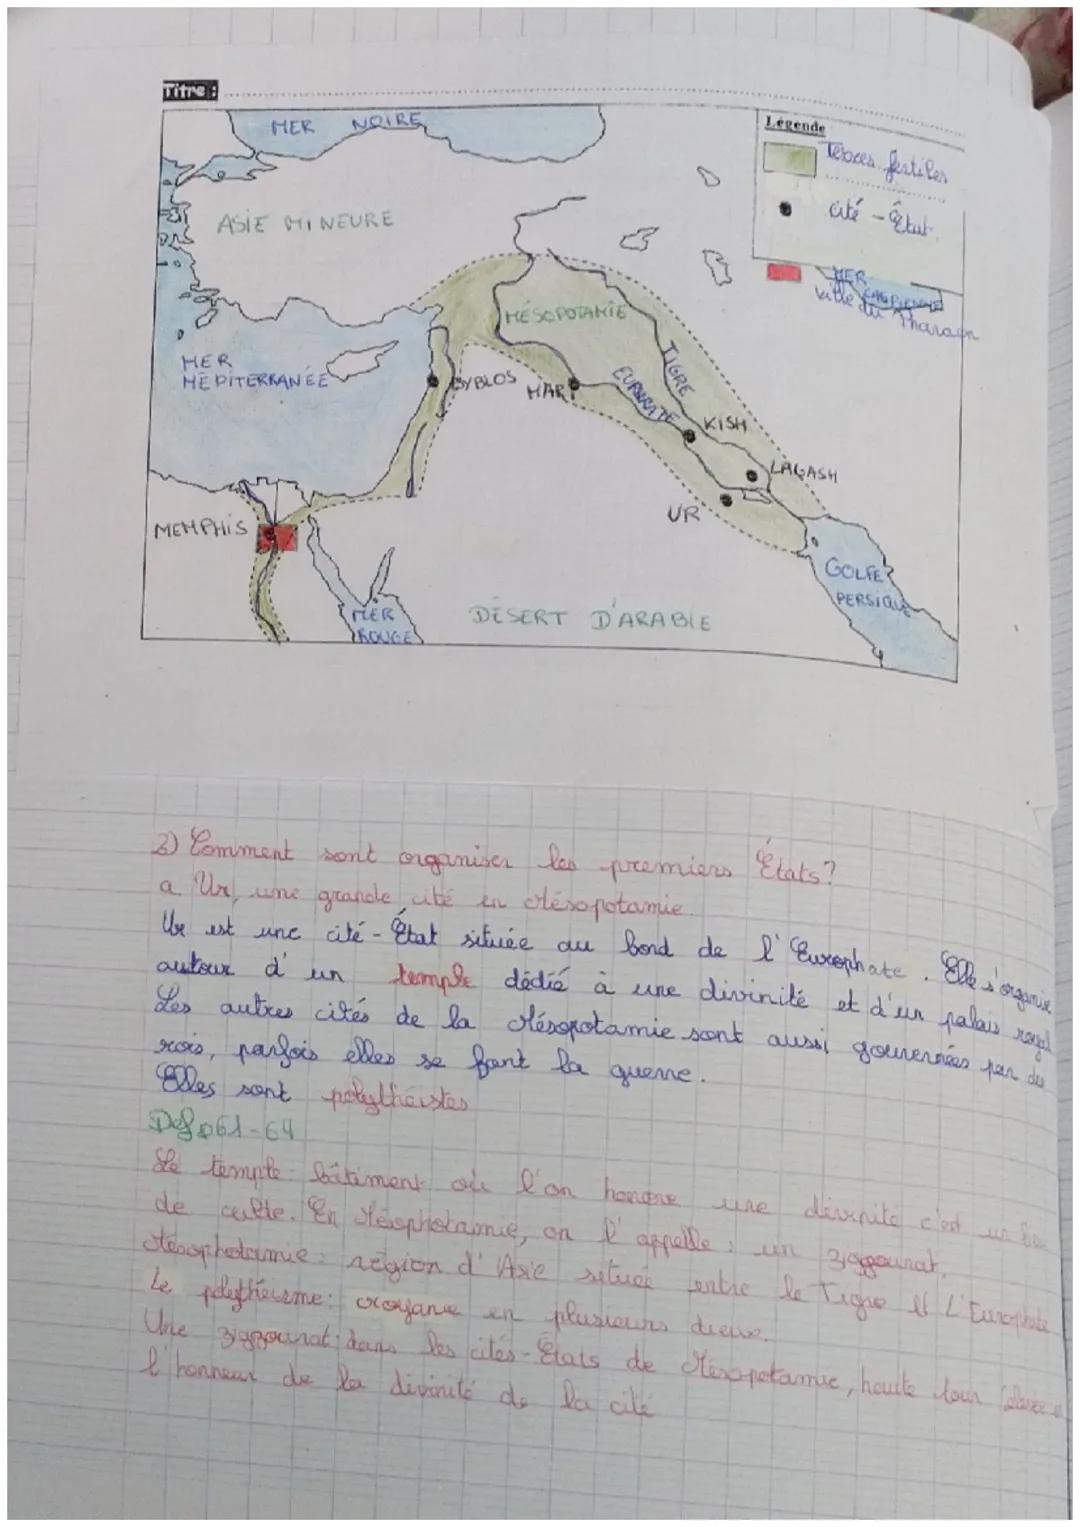 Titre :
MER NOIRE
Légende
Terres fertiles
cité - État
MER CASPIENNE
ville du Pharaon
ASIE MINEURE
MÉSOPOTAMIE
MER MÉDITERRANÉE
TIGRE
EUPHRATE
BYBLOS
MARI
KISH
LAGASH
UR
MEMPHIS
GOLFE PERSIQUE
MER ROUGE
DÉSERT D'ARABIE
2) Comment sont organiser les premiers États?
a Ur, une grande cité en Mésopotamie.
Ur est une cité-État située au bord de l'Europhate. Elle s'organise
autour d'un temple dédié à une divinité et d'un palais royal
Les autres cités de la Mésopotamie sont aussi gouvernées par des
rois, parfois elles se font la guerre.
Elles sont polythéistes
Def p61-64
Le temple bâtiment où l'on honore une divinité c'est un lieu
de culte. En Mésophotamie, on l'appelle : un ziggourat.
Mésophotamie : région d'Asie située entre le Tigre et L'Europhate
Le polythéisme : croyance en plusieurs dieux.
Une ziggourat : dans les cités-États de Mésopotamie, haute tour
l'honneur de la divinité de la cité